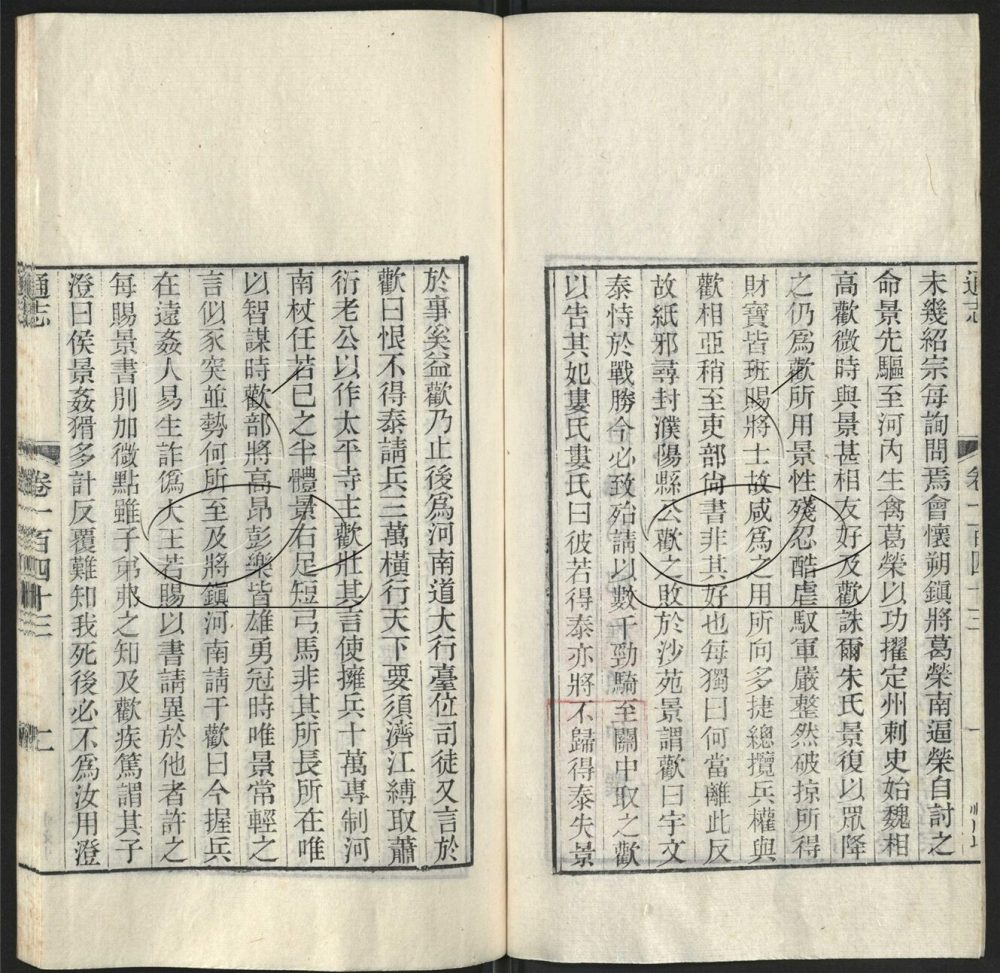 通志
卷一百四十三
一
未幾紹宗每詢問焉會懷朔鎮將葛榮南逼榮自討之
命景先驅至河內生禽葛榮以功擢定州刺史始魏相
高歡微時與景甚相友好及歡誅爾朱氏景復以眾降
之仍為歡所用景性殘忍酷虐馭軍嚴整然破掠所得
財寶皆班賜將士故咸為之用所向多捷總攬兵權與
歡相亞稍至吏部尙書非其好也每獨曰何當離此反
故紙邪尋封濮陽縣公歡之敗於沙苑景謂歡曰宇文
泰恃於戰勝今必致殆請以數千勁騎至關中取之歡
以告其妃婁氏婁氏曰彼若得泰亦將不歸得泰失景
於事奚益歡乃止後為河南道大行臺位司徒又言於
歡曰恨不得泰請兵三萬橫行天下要須濟江縛取蕭
衍老公以作太平寺主歡壯其言使擁兵十萬專制河
南杖任若己之半體景右足短弓馬非其所長所在唯
以智謀時歡部將高昂彭樂皆雄勇冠時唯景常輕之
言似豕突並勢何所至及將鎮河南請于歡曰今握兵
在遠姦人易生詐僞大王若賜以書請異於他者許之
每賜景書別加微點雖子弟弗之知及歡疾篤謂其子
澄曰侯景姦猾多計反覆難知我死後必不為汝用澄
通志
卷一百四十三
二